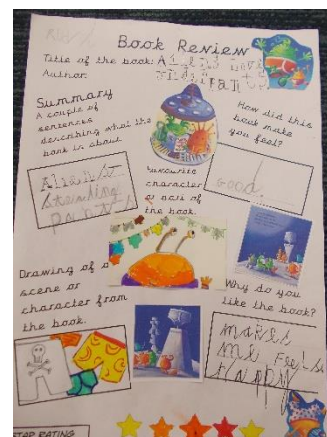 Book Review
Title of the book: Aliens Love
Author: Pants
Summary
A couple of
sentences
describing what the
book is about.
How did this
book make
you feel?
Aliens
pants
Favourite
character
or part of
the book.
Good
Drawing of a
scene or
character from
the book.
Why do you
like the book?
makes
me feel
Happy
STAR RATING